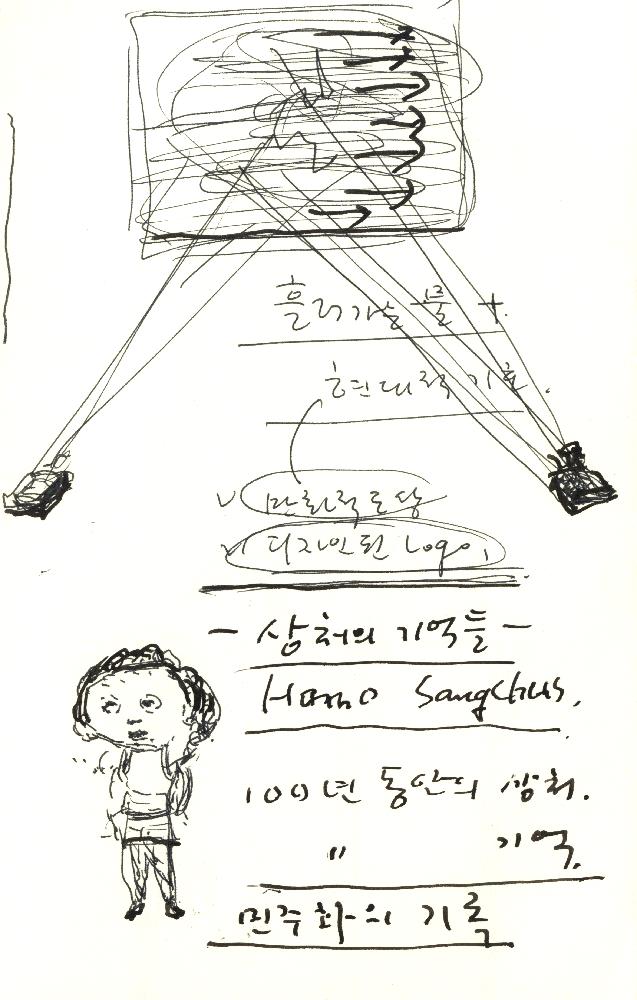 흘러가는 물 +.
현대적 기호.
∨ 만화적 도상
∨ 디자인된 Logo,
— 상처의 기억들 —
Homo Sangchus.
100년 동안의 상처.
〃 기억.
민주화의 기록